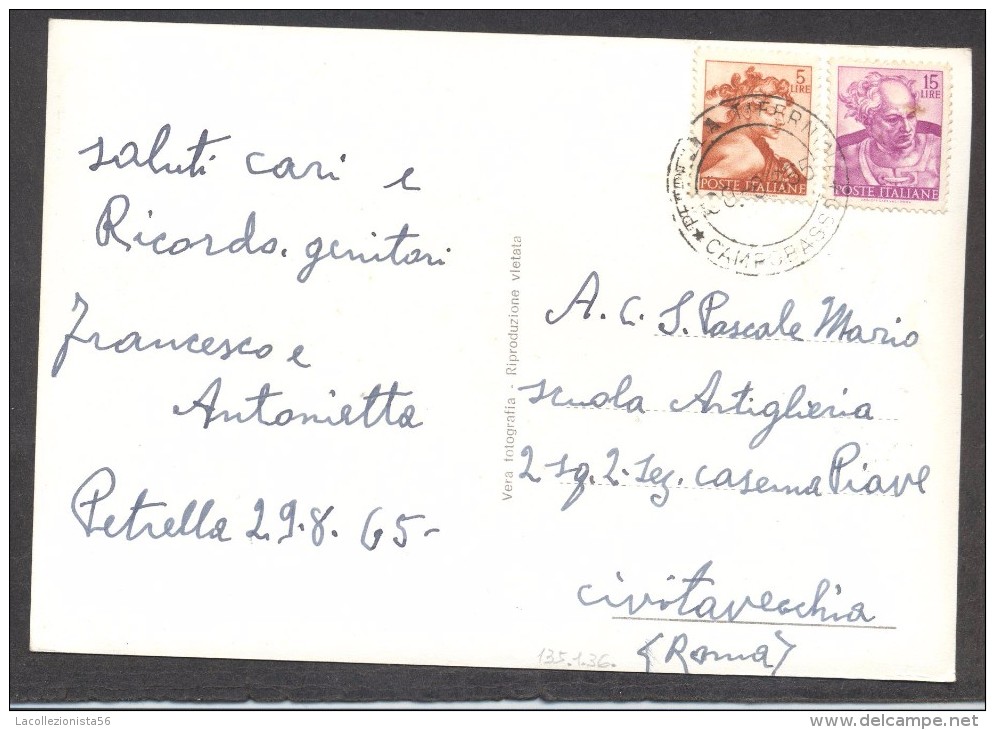 saluti cari e
Ricordo. genitori
Francesco e
Antonietta
Petrella 29.8.65-
Vera fotografia - Riproduzione vietata
5
LIRE
POSTE ITALIANE
15
LIRE
POSTE ITALIANE
TIFERNINA
CAMPOBASSO
A. C. S. Pascale Mario
scuola Artiglieria
2 sq. 2. sez. caserma Piave
civitavecchia
(Roma)
135.1.36.
Lacollezionista56
www.delcampe.net